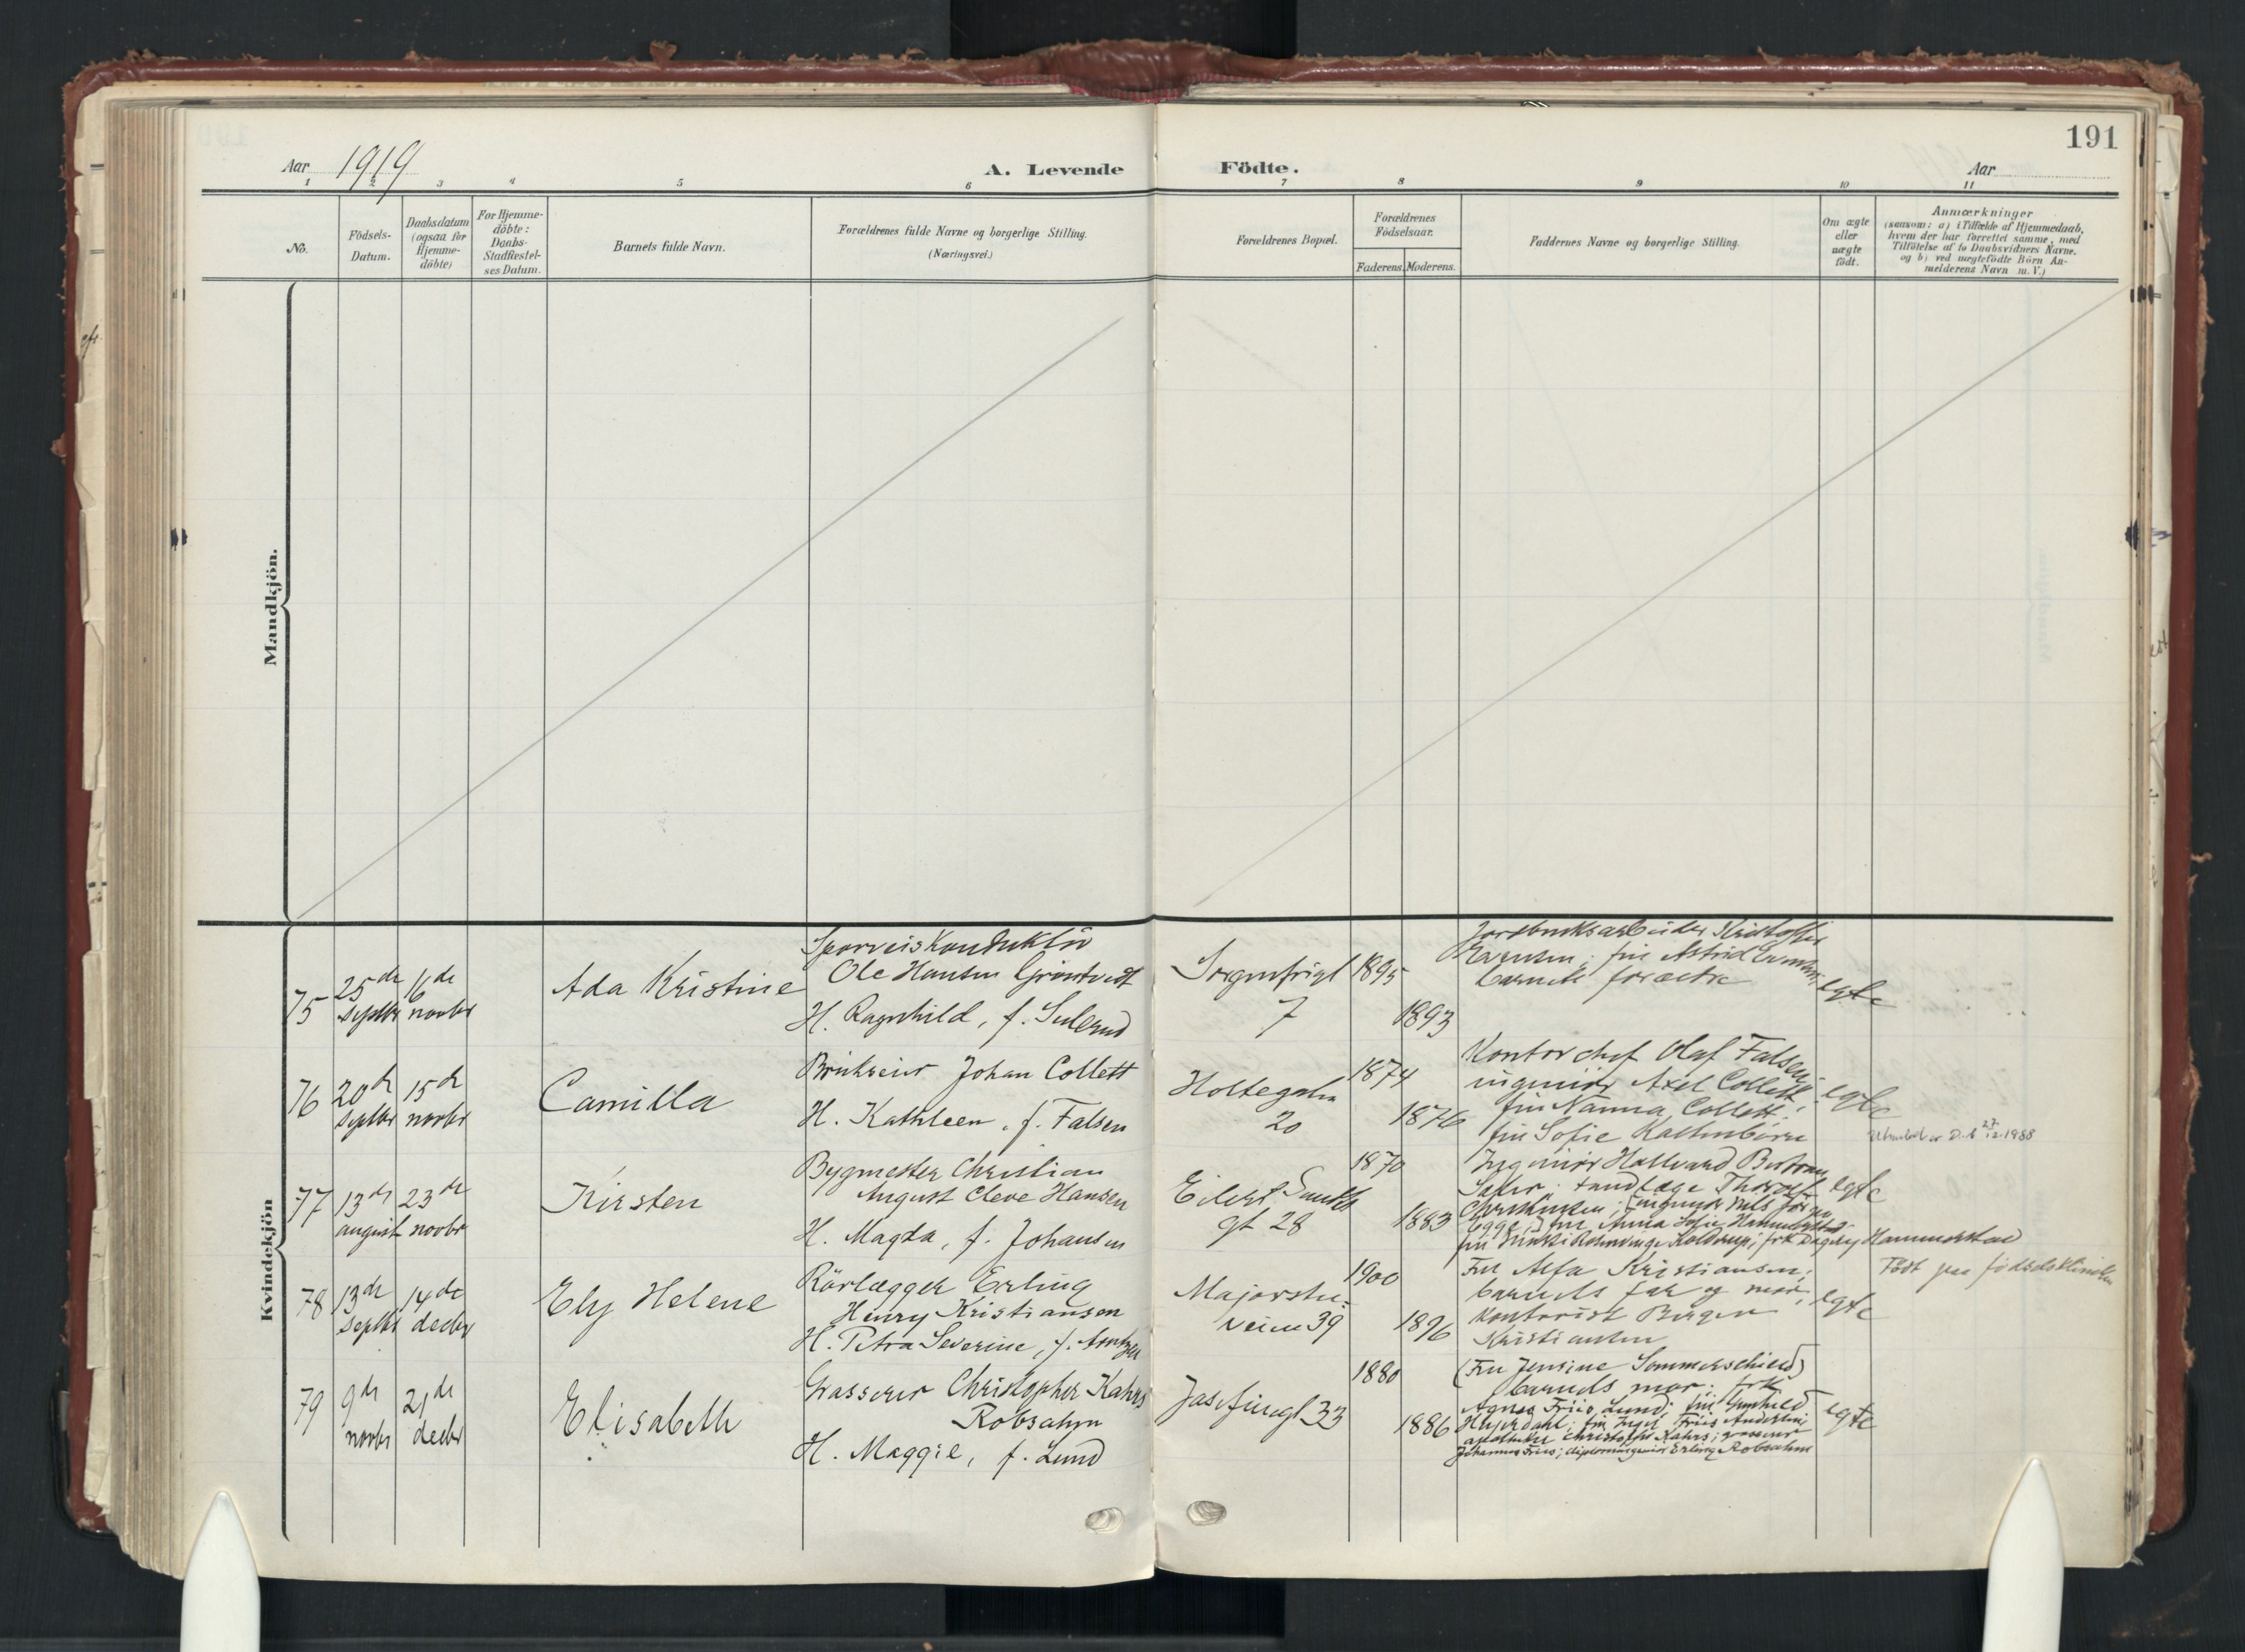 191
Aar 1919
A. Levende Födte.
Aar
1 2 3 4 5 6 7 8 9 10 11
No.
Födsels-
Datum.
Daabsdatum
(ogsaa for
Hjemme-
döbte)
For Hjemme-
döbte:
Daabs-
Stadfestel-
ses Datum.
Barnets fulde Navn.
Forældrenes fulde Navne og borgerlige Stilling.
(Næringsvei.)
Forældrenes Bopæl.
Forældrenes
Födselsaar.
Faderens. Moderens.
Faddernes Navne og borgerlige Stilling.
Om ægte
eller
uægte
födt.
Anmærkninger
(saasom: a) i Tilfælde af Hjemmedaab,
hvem der har forrettet samme, med
Tilföielse af to Daabsvidners Navne.
og b) ved uægtefödte Börn An-
melderens Navn m. V.)
Mandkjön.
Kvindekjön
75
25de
septbr
16de
novbr
Ada Kristine
Sporveiskonduktör
Ole Hansen Gröntvedt
H. Ragnhild, f.
Sorgenfrigt
7
1895
1893
Jordbruksarbeider Kristoffer
fru Astrid
barnets forældre
egte
76
20de
septbr
15de
novbr
Camilla
Brukseier Johan Collett
H. Kathleen, f. Falsen
Holtegaten
20
1874
1876
Kontorchef Olaf Falsen;
ingeniör Axel Collett;
fru Nanna Collett;
fru Sofie
egte
27/12 1988
77
13de
august
23de
novbr
Kirsten
Bygmester Christian
August Cleve Hansen
H. Magda, f. Johansen
Eilert Sundts
gt 28
1870
1883
Ingeniör Hallvard
tandlæge
Christensen; ingeniör Nils
Egge; fru Anna Sofie
Hammerstad
egte
78
13de
septbr
14de
decbr
Ely Helene
Rörlægger Erling
Henry Kristiansen
H. Petra Severine, f. Arntzen
Majorstu-
veien 39
1900
1896
Fru Alfa Kristiansen;
barnets far og mor;
kontorist Birger
Kristiansen
egte
Födt paa födselsklinikken
79
9de
novbr
21de
decbr
Elisabeth
Grosserer Christopher Kahrs
Robsahm
H. Maggie, f. Lund
Josefinegt 33
1880
1886
(Fru Jensine Sommerschield)
barnets mor; frk
Agnes Friis Lund; fru Gunhild
Hejerdahl; fru Inger Friis
apotheker Christoffer Kahrs; grosserer
Johannes Friis; diplomingeniör Erling Robsahm
egte